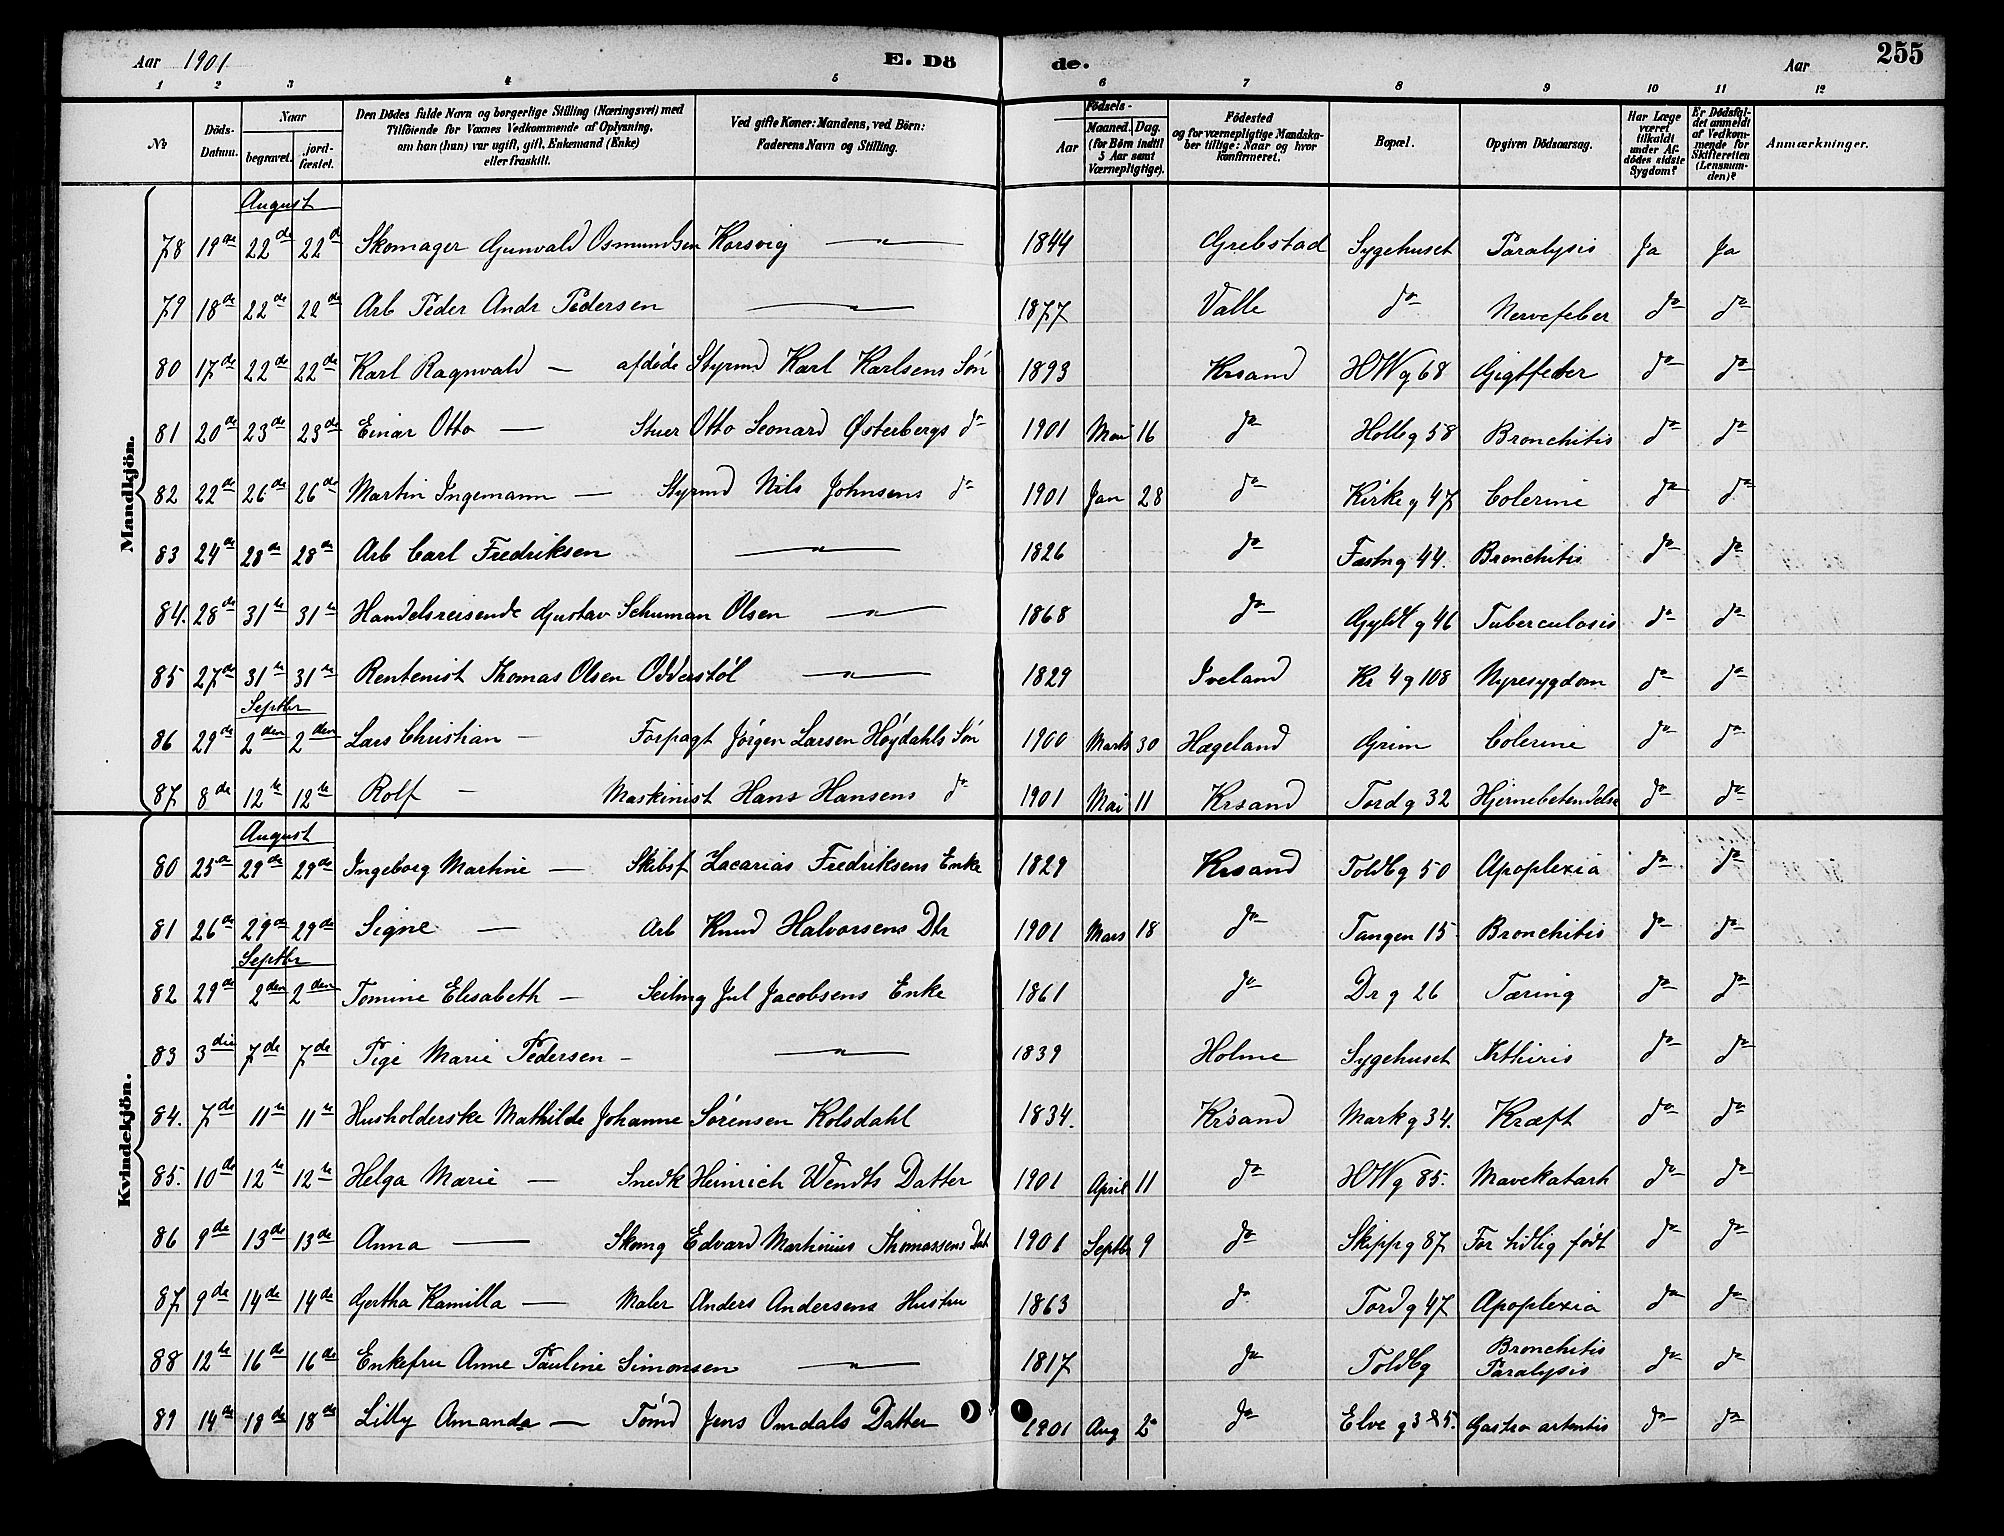 Aar 1901 E. Dö de. Aar 255
1 2 3 4 5 6 7 8 9 10 11 12
No Döds-Datum. Naar begravet. jordfæstet. Den Dödes fulde Navn og borgerlige Stilling (Næringsvei) med Tilföiende for Voxnes Vedkommende af Oplysning, om han (hun) var ugift, gift, Enkemand (Enke) eller fraskilt. Ved gifte Koner: Mandens, ved Börn: Faderens Navn og Stilling. Födsels- Aar Maaned. Dag. (for Börn indtil 5 Aar samt Værnepligtige). Födested og for værnepligtige Mandskaber tillige: Naar og hvor konfirmeret. Bopæl. Opgiven Dödsaarsag. Har Læge været tilkaldt under Afdödes sidste Sygdom? Er Dödsfaldet anmeldt af Vedkommende for Skifteretten (Lensmanden)? Anmærkninger.
Mandkjön.
August
78 19de 22de 22d Skomager Gunvald Osmundsen Korsvig — " — 1844 Grebstad Sygehuset Paralysis Ja Ja
79 18de 22de 22de Arb Peder Andr Pedersen — " — 1877 Valle do Nervefeber do do
80 17de 22de 22de Karl Ragnvald — afdøde Styrmd Karl Karlsens Søn 1893 Krsand HWg 68 Gigtfeber do do
81 20de 23de 23de Einar Otto — Stuer Otto Leonard Østerbergs do 1901 Mai 16 do Holbg 58 Bronchitis do do
82 22de 26de 26de Martin Ingemann — Styrmd Nils Johnsens do 1901 Jan 28 do Kirkeg 47 Colerine do do
83 24de 28de 28de Arb Carl Fredriksen — " — 1826 do Fæstng 44. Bronchitis do do
84. 28de 31te 31te Handelsreisende Gustav Schuman Olsen — " — 1868 do Gyldl g 46 Tuberculosis do do
85 27de 31te 31te Rentenist Thomas Olsen Odderstøl — " — 1829 Iveland Kr 4 g 108 Nyresygdom do do
Septbr
86 29de 2den 2den Lars Christian — Forpagt Jørgen Larsen Høydahls Søn 1900 Marts 30 Hægeland Grim Colerine do do
87 8de 12te 12te Rolf — Maskinist Hans Hansens do 1901 Mai 11 Krsand Tordg 32 Hjernebetendelse do do
Kvindekjön.
August
80 25de 29de 29de Ingeborg Martine — Skibsf Zacarias Fredriksens Enke 1829 Krsand Toldbg 50 Apoplexia do do
81 26de 29de 29de Signe — Arb Knud Halvorsens Dtr 1901 Mars 18 do Tangen 15 Bronchitis do do
Septbr
82 29de 2den 2den Tomine Elisabeth — Seilmg Jul Jacobsens Enke 1861 do Dr g 26 Tæring do do
83 3die 7de 7de Pige Marie Pedersen — — " — 1839 Holme Sygehuset do do
84. 7de 11te 11te Husholderske Mathilde Johanne Sørensen Kolsdahl 1834. Krsand Markg 34. Kræft do do
85. 10de 12te 12te Helga Marie — Snedk Heinrich Wendts Datter 1901 April 11 do HWg 85. Mavekatarh do do
86 9de 13de 13de Anna — Skomg Edvard Martinius Thomassens Dat 1901 Septbr 9 do Skippg 87 For tidlig født do do
87 9de 14de 14de Gertha Kamilla — Maler Anders Andersens Hustru 1863 do Tordg 47 Apoplexia do do
88 12te 16de 16de Enkefru Anne Pauline Simonsen — " — 1817 do Toldbg Bronchitis Paralysis do do
89 14de 18de 18de Lilly Amanda — Tømd Jens Omdals Datter 1901 Aug 2 do Elve g Gastro do do